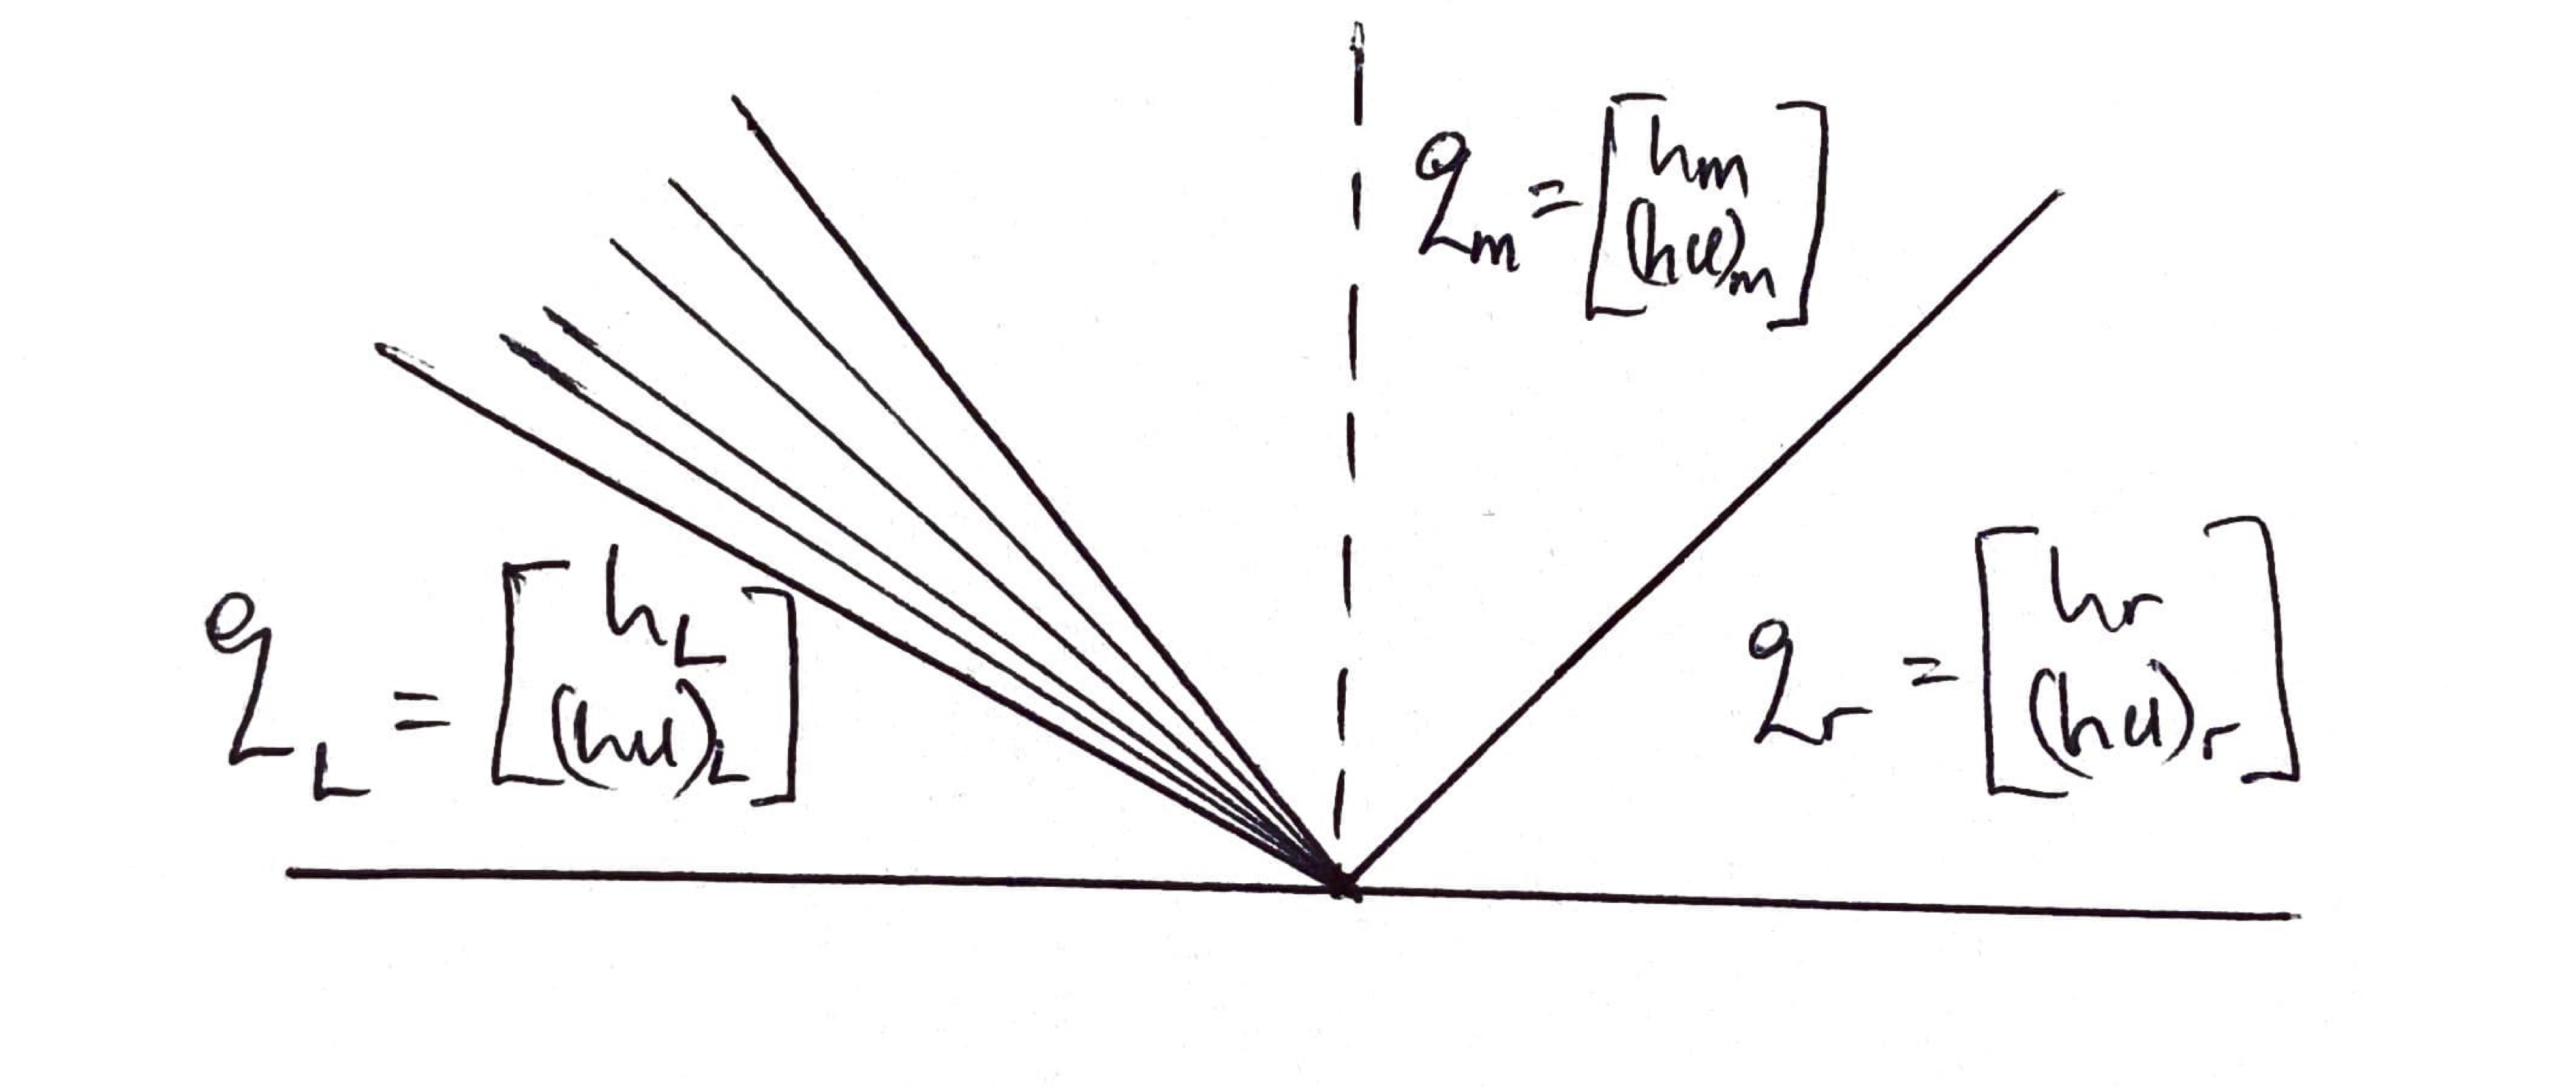 q_m = [h_m
(hu)_m]
q_L = [h_L
(hu)_L]
q_r = [h_r
(hu)_r]